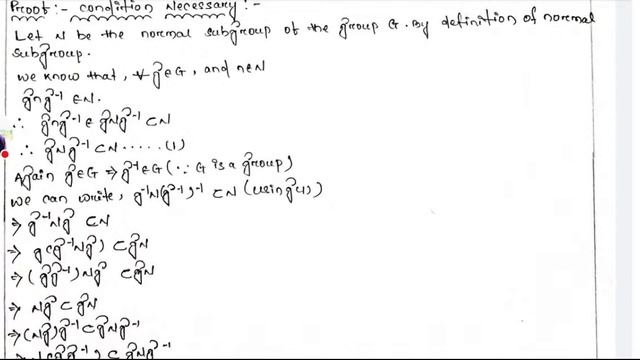 Proof:- condition Necessary:-
Let N be the normal subgroup of the group G. By definition of normal
subgroup.
we know that, ∀ g∈G, and n∈N
gng⁻¹ ∈N.
∴ gng⁻¹∈ gNg⁻¹ ⊂N
∴ gNg⁻¹ ⊂N ......(1)
Again g∈G ⇒ g⁻¹∈G (∵ G is a group)
we can write, g⁻¹N(g⁻¹)⁻¹ ⊂N (using(1))
⇒ g⁻¹Ng ⊂N
⇒ g(g⁻¹Ng) ⊂gN
⇒ (gg⁻¹)Ng ⊂gN
⇒ Ng⊂gN
⇒(Ng)g⁻¹⊂gNg⁻¹
⇒ N(gg⁻¹) ⊂ gNg⁻¹